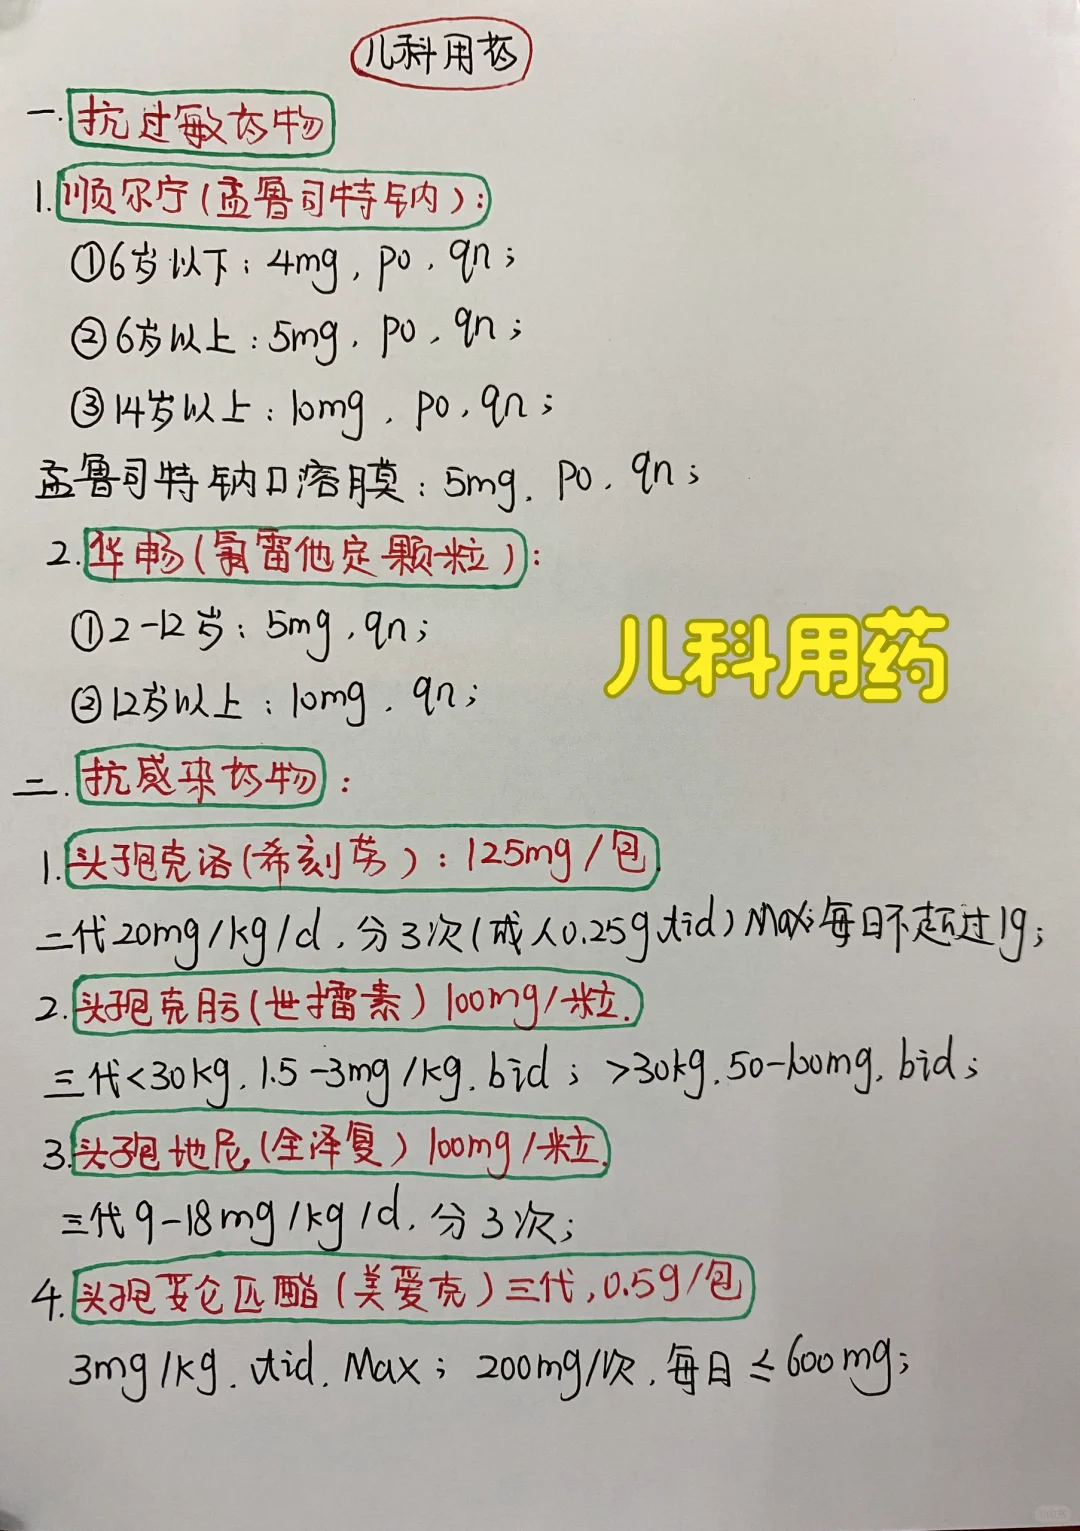 儿科用药
一.抗过敏药物
1.顺尔宁(孟鲁司特钠):
①6岁以下:4mg,po,qn;
②6岁以上:5mg,po,qn;
③14岁以上:10mg,po,qn;
孟鲁司特钠口溶膜:5mg,po,qn;
2.华畅(氯雷他定颗粒):
①2-12岁:5mg,qn;
儿科用药
②12岁以上:10mg,qn;
二.抗感染药物:
1.头孢克洛(希刻劳):125mg/包
二代20mg/kg/d,分3次(成人0.25g,tid)Max:每日不超过1g;
2.头孢克肟(世擂素)100mg/粒.
三代<30kg,1.5-3mg/kg,bid;>30kg,50-100mg,bid;
3.头孢地尼(全泽复)100mg/粒.
三代9-18mg/kg/d,分3次;
4.头孢妥仑匹酯(美爱克)三代,0.5g/包
3mg/kg,tid,Max;200mg/次,每日≤600mg;